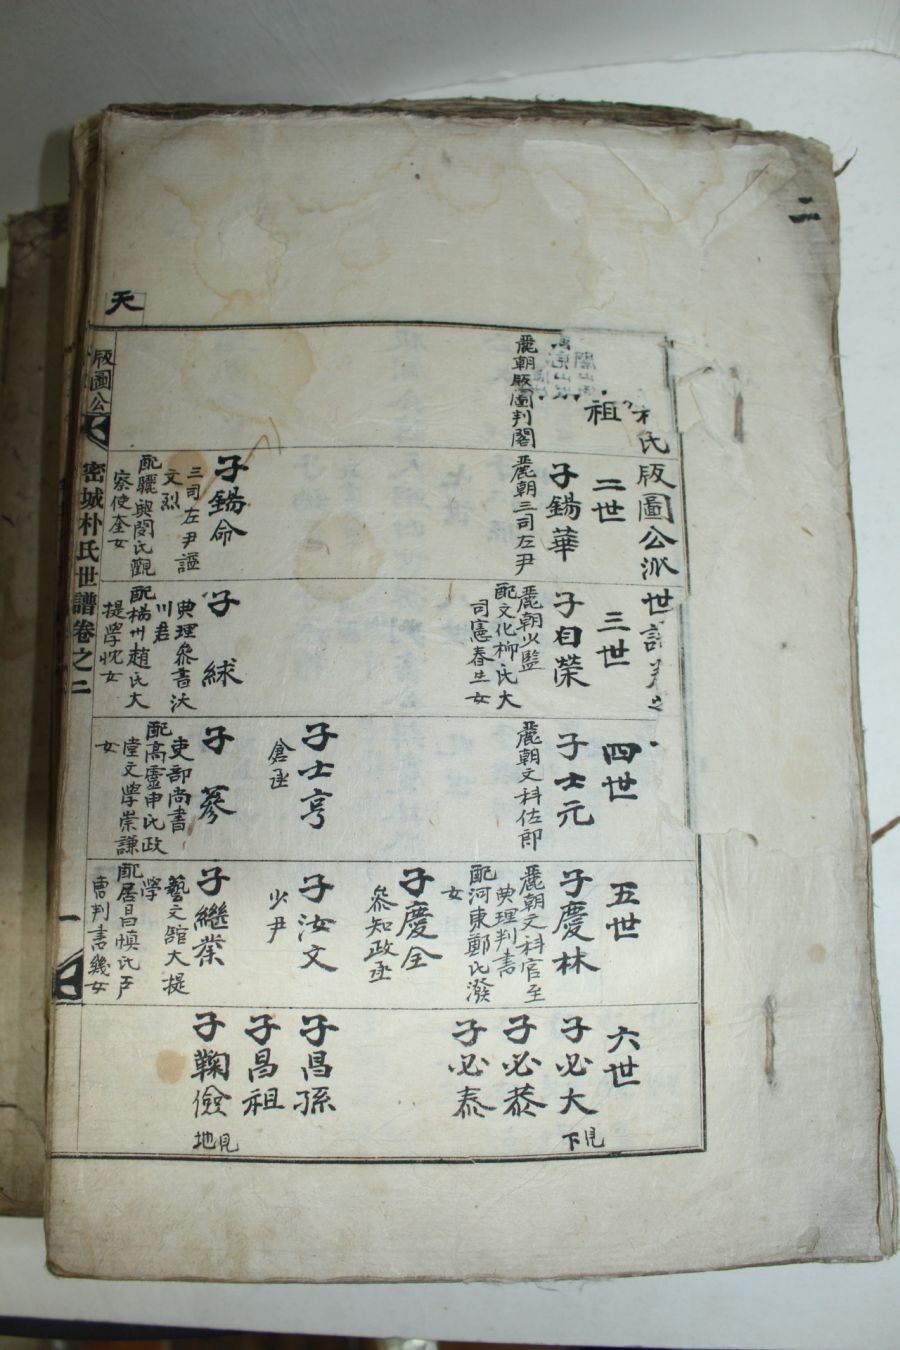 二
氏版圖公派世譜卷之
祖
麗朝版圖判閣
二世
子錫華
麗朝三司左尹
子錫命
三司左尹諡
文烈
配驪興閔氏觀
察使奎女
三世
子日榮
麗朝少監
配文化柳氏大
司憲春生女
子 絿
典理參書沃
川君
配楊州趙氏大
提學忱女
四世
子士元
麗朝文科佐郎
子士亨
倉丞
子 蔘
吏部尚書
配高靈申氏政
堂文學崇謙
女
五世
子慶林
麗朝文科官至
典理判書
配河東鄭氏潑
女
子慶全
參知政丞
子汝文
少尹
子繼業
藝文館大提
學
配居昌愼氏戸
曹判書幾女
六世
子必大
見下
子必恭
子必泰
子昌孫
子昌祖
子鞠儉
見地
天
版圖公
密城朴氏世譜卷之二
一